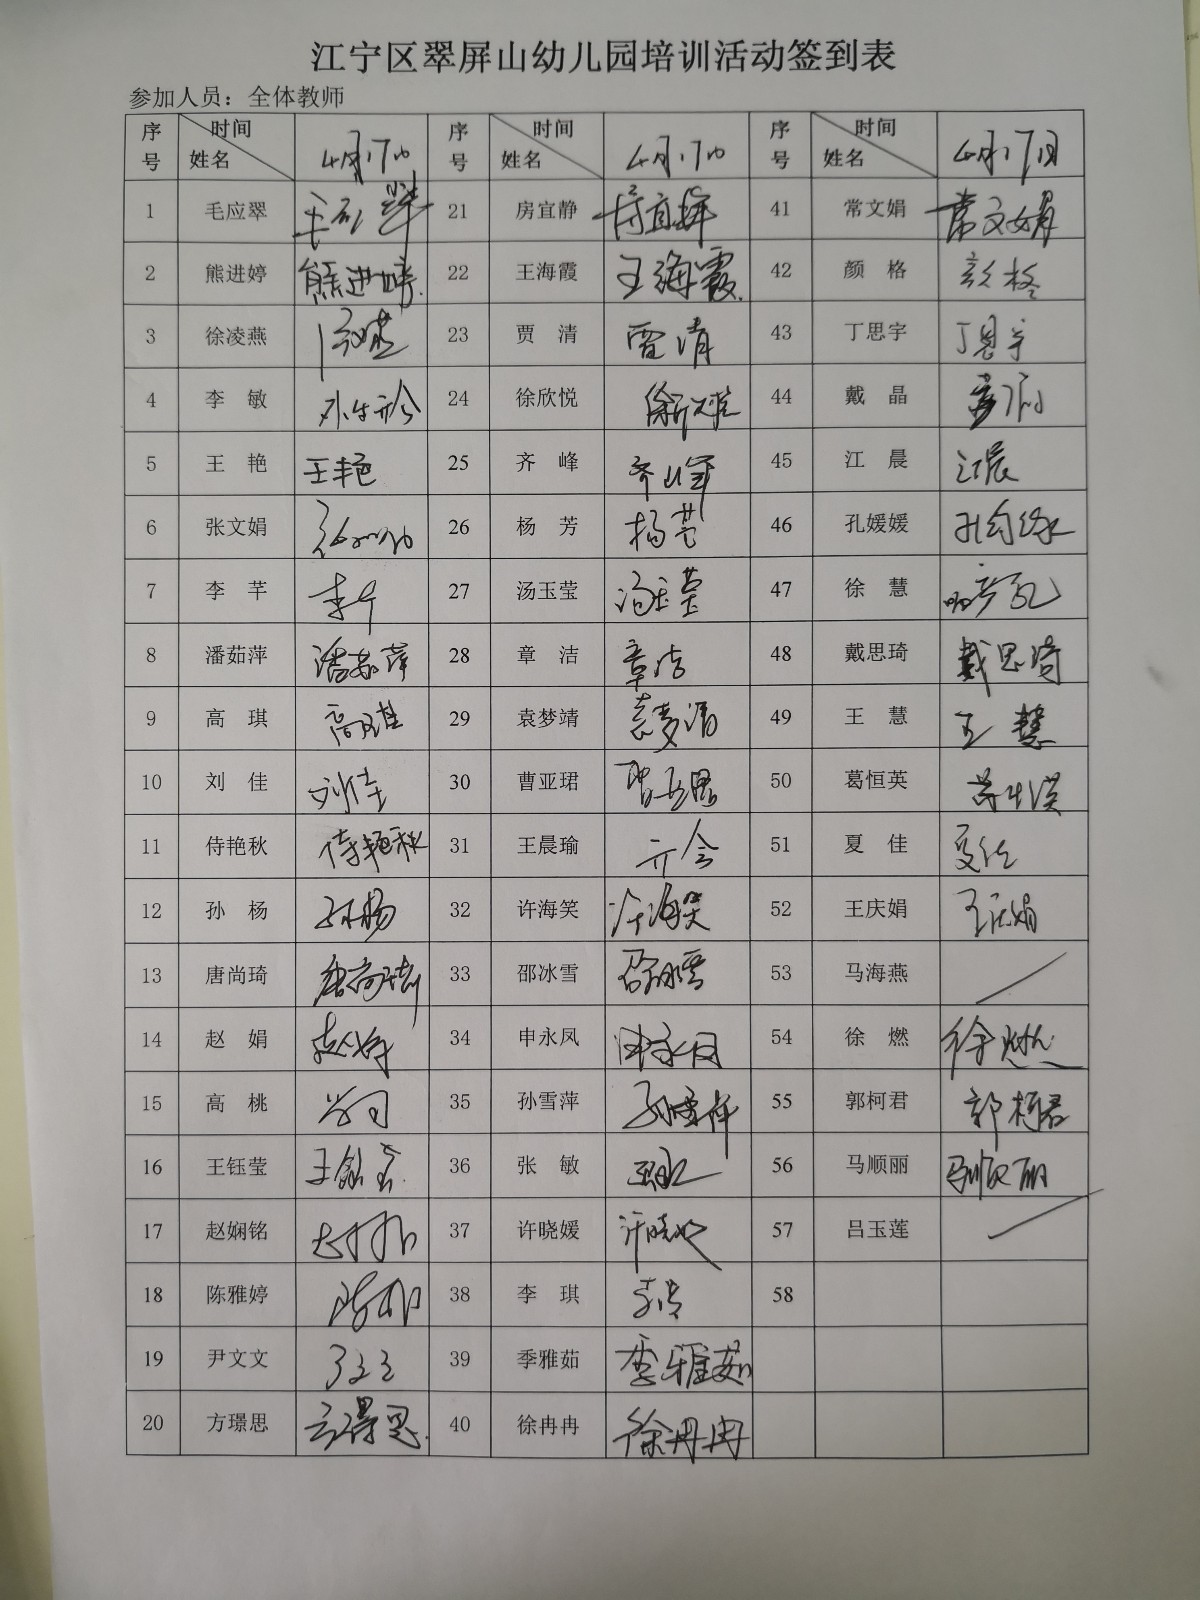 江宁区翠屏山幼儿园培训活动签到表
参加人员：全体教师
序号 时间 姓名 4月17日 序号 时间 姓名 4月17日 序号 时间 姓名 4月17日
1 毛应翠 21 房宜静 41 常文娟 常文娟
2 熊进婷 熊进婷 22 王海霞 王海霞 42 颜 格 颜格
3 徐凌燕 23 贾 清 贾清 43 丁思宇 丁思宇
4 李 敏 24 徐欣悦 徐欣悦 44 戴 晶
5 王 艳 王艳 25 齐 峰 齐峰 45 江 晨 江晨
6 张文娟 26 杨 芳 杨芳 46 孔媛媛
7 李 芊 李芊 27 汤玉莹 汤玉莹 47 徐 慧
8 潘茹萍 潘茹萍 28 章 洁 章洁 48 戴思琦 戴思琦
9 高 琪 高琪 29 袁梦靖 袁梦靖 49 王 慧 王慧
10 刘 佳 刘佳 30 曹亚珺 50 葛恒英
11 侍艳秋 侍艳秋 31 王晨瑜 51 夏 佳 夏佳
12 孙 杨 孙杨 32 许海笑 许海笑 52 王庆娟 王庆娟
13 唐尚琦 唐尚琦 33 邵冰雪 邵冰雪 53 马海燕
14 赵 娟 赵娟 34 申永凤 申永凤 54 徐 燃 徐燃
15 高 桃 35 孙雪萍 孙雪萍 55 郭柯君 郭柯君
16 王钰莹 王钰莹 36 张 敏 56 马顺丽 马顺丽
17 赵娴铭 37 许晓媛 许晓媛 57 吕玉莲
18 陈雅婷 38 李 琪 58
19 尹文文 尹文文 39 季雅茹 季雅茹
20 方璟思 方璟思 40 徐冉冉 徐冉冉